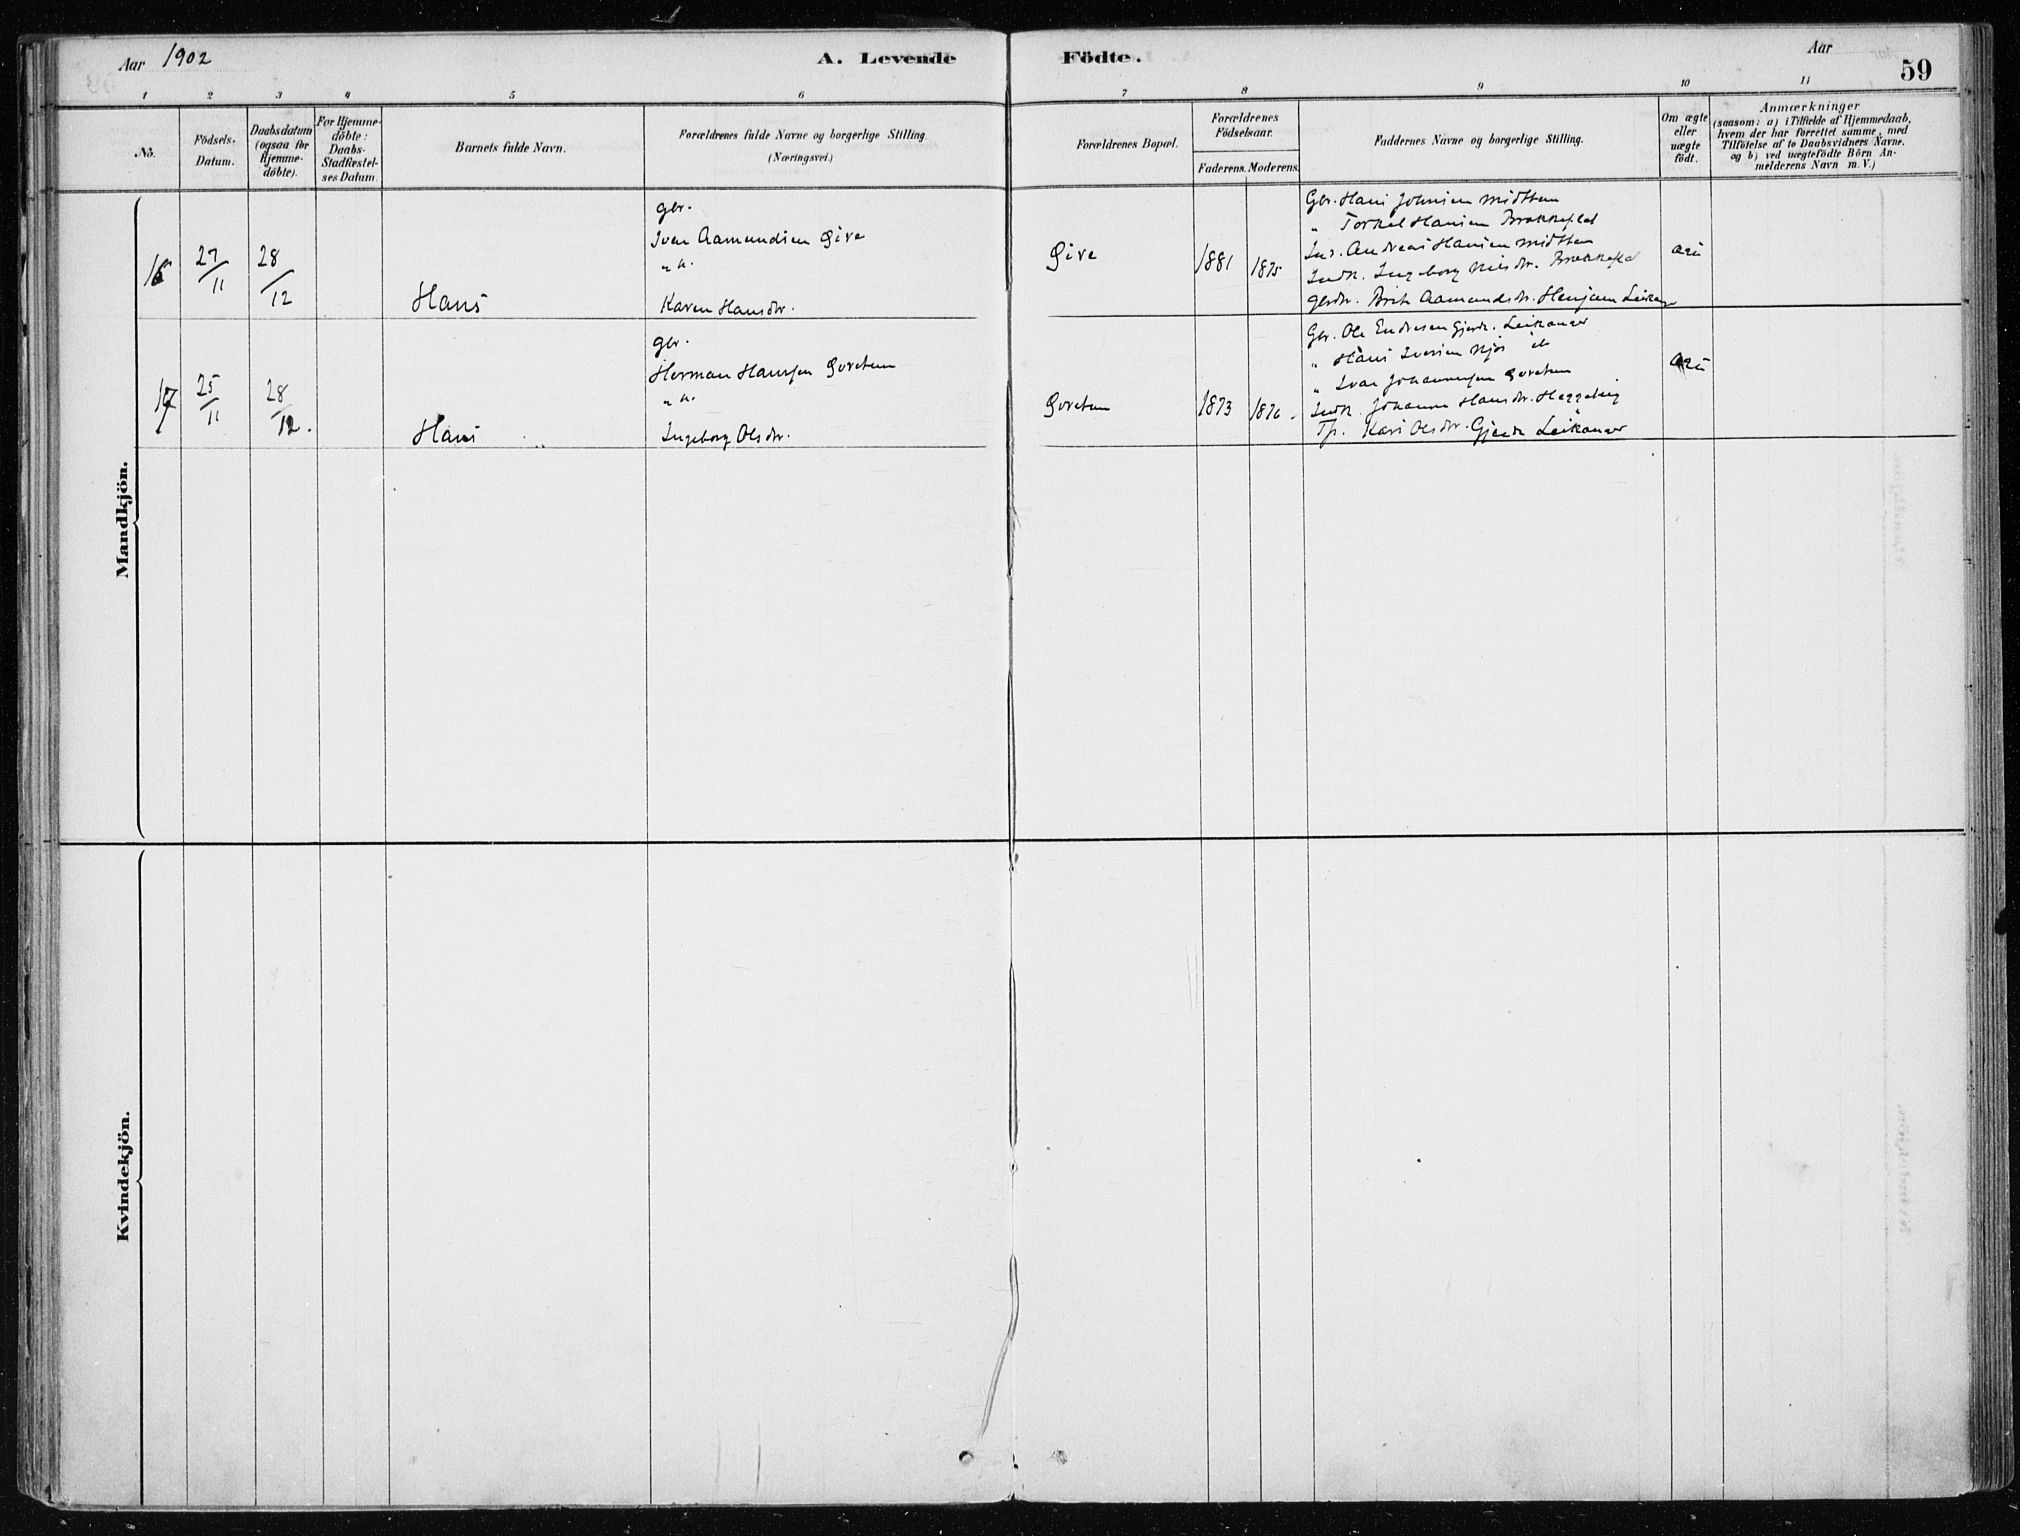 Aar 1902
A. Levende Födte.
Aar
59
1 2 3 4 5 6 7 8 9 10 11
No.
Födsels-
Datum.
Daabsdatum
(ogsaa for
Hjemme-
döbte).
For Hjemme-
döbte:
Daabs-
Stadfæstel-
ses Datum.
Barnets fulde Navn.
Forældrenes fulde Navne og borgerlige Stilling.
(Næringsvei.)
Forældrenes Bopæl.
Forældrenes
Födselsaar.
Faderens. Moderens.
Faddernes Navne og borgerlige Stilling.
Om ægte
eller
uægte
födt.
Anmærkninger
(saasom: a) i Tilfælde af Hjemmedaab,
hvem der har forrettet samme, med
Tilföielse af to Daabsvidners Navne.
og b) ved uægtefödte Börn An-
melderens Navn m. V.)
Mandkjön.
16
27/11
28/12
Hans
gbr.
Iver Aamundsen Gire
"h.
Karen Hansdtr.
Gire
1881 1875
Gbr. Hans Johnsen Midttun
" Torkel Hansen Brekkeflat
Andreas Hansen Midttun
Indk. Ingeborg Nilsdtr. Brekkeflat
Brita Aamundsdtr. Henjum Leikanger
17
25/11
28/12.
Hans
gbr.
Herman Hanssen
"h.
Ingeborg Olsdtr.
1873 1876
Gbr. Ole Endresen Gjerde. Leikanger
" Hans Iversen Njøs
" Ivar Johannessen
Indk. Johanne Hansdtr.
Kari Olsdtr. Gjerde Leikanger
Kvindekjön.